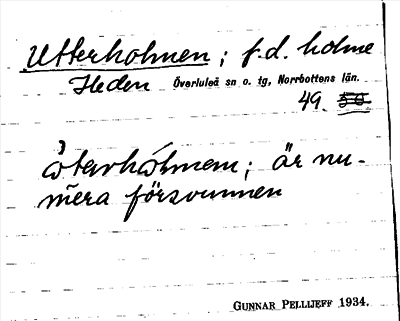 Utterholmen; f.d. holme
Heden Överluleå sn o. tg, Norrbottens län.
49. 50.
òtərhólmem; är nu-
mera försvunnen
GUNNAR PELLIJEFF 1934.